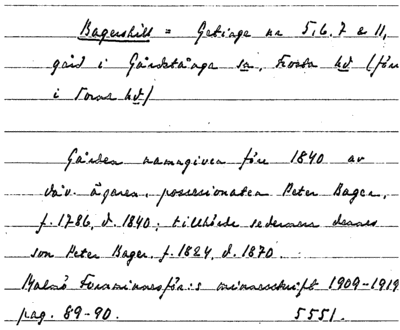 Bagershill = Getinge nr 5, 6, 7 & 11,
gård i Gårdstånga sn, Frosta hd (förr
i Torna hd)
Gården namngiven före 1840 av
dåv. ägaren, possessionaten Peter Bager,
f. 1786, d. 1840; tillhörde sedermera dennes
son Peter Bager, f. 1824, d. 1870.
Malmö Fornminnesför:s minnesskrift 1909-1919
pag. 89-90. 5551.